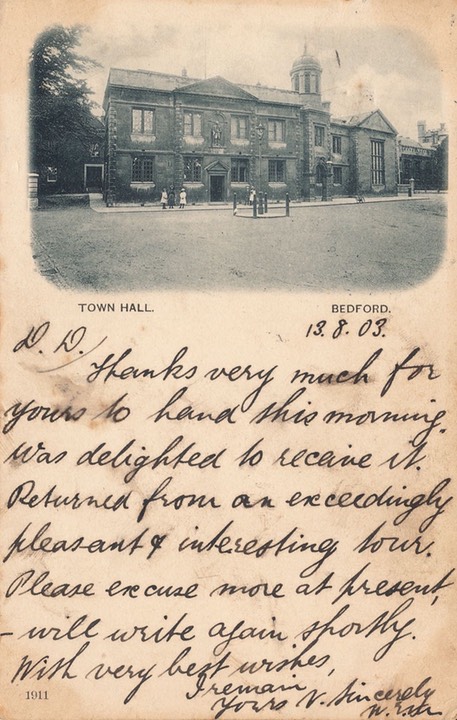 TOWN HALL. BEDFORD.
13.8.03.
D. D.
Thanks very much for
yours to hand this morning.
Was delighted to receive it.
Returned from an exceedingly
pleasant & interesting tour.
Please excuse more at present,
- will write again shortly.
With very best wishes,
I remain
Yours V. Sincerely
1911